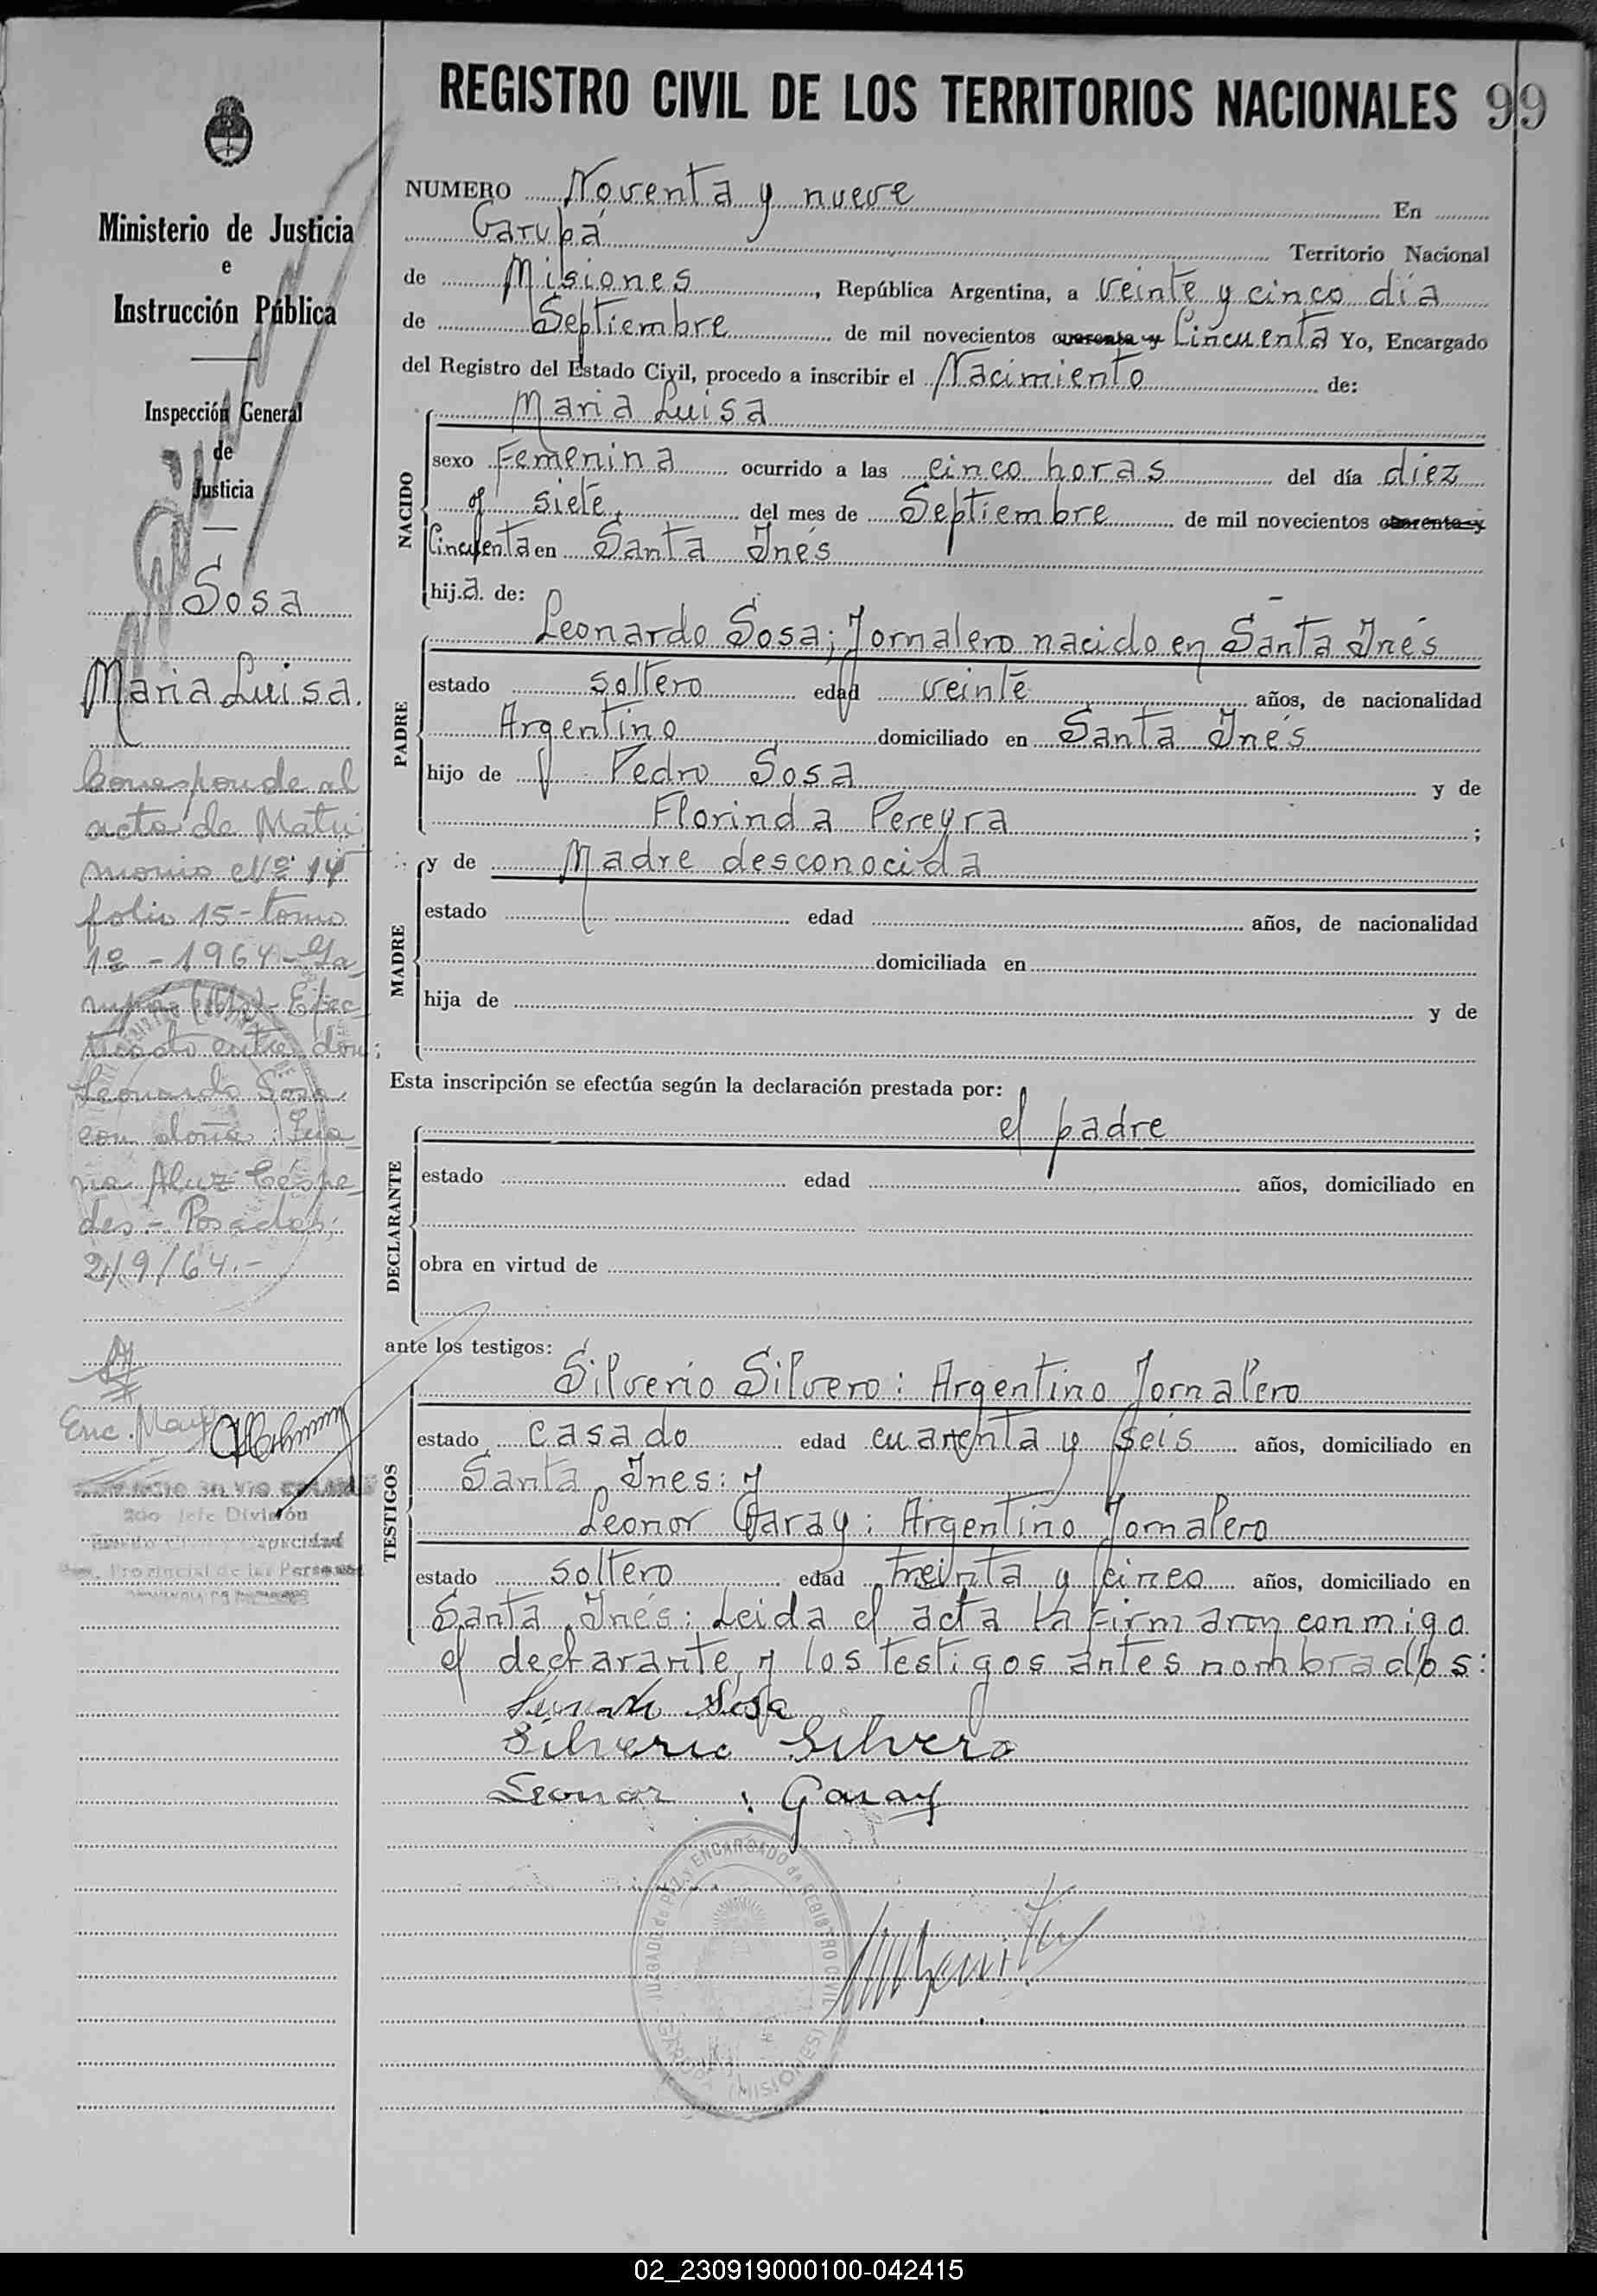 REGISTRO CIVIL DE LOS TERRITORIOS NACIONALES 99
Ministerio de Justicia
e
Instrucción Pública
Inspección General
de
Justicia
Sosa
Maria Luisa.
Corresponde al
acta de Matri
monio Nº 14
folio 15 - tomo
1º - 1964 - Ga
rupá (Ms) - Efec
tuado entre don:
Leonardo Sosa
con doña: Jua
na Céspe
des - Posadas,
2/9/64.-
Enc. May
2do Jefe División
Estado Civil y Capacidad
Provincial de las Personas
NUMERO Noventa y nueve En
Garupá Territorio Nacional
de Misiones, República Argentina, a veinte y cinco día
de Septiembre de mil novecientos cuarenta y Cincuenta Yo, Encargado
del Registro del Estado Civil, procedo a inscribir el Nacimiento de:
NACIDO
Maria Luisa
sexo Femenina ocurrido a las cinco horas del día diez
y siete, del mes de Septiembre de mil novecientos cuarenta y
Cincuenta en Santa Inés
hija de:
PADRE
Leonardo Sosa; Jornalero nacido en Santa Inés
estado soltero edad veinte años, de nacionalidad
Argentino domiciliado en Santa Inés
hijo de Pedro Sosa y de
Florinda Pereyra;
MADRE
y de Madre desconocida
estado edad años, de nacionalidad
domiciliada en
hija de y de
Esta inscripción se efectúa según la declaración prestada por:
DECLARANTE
el padre
estado edad años, domiciliado en
obra en virtud de
ante los testigos:
TESTIGOS
Silverio Silvero: Argentino Jornalero
estado casado edad cuarenta y seis años, domiciliado en
Santa Ines: y
Leonor Garay: Argentino Jornalero
estado soltero edad treinta y cinco años, domiciliado en
Santa Inés: Leida el acta la firmaron conmigo
el declarante, y los testigos antes nombrados:
Sosa
Silverio Silvero
Leonor Garay
JUZGADO de PAZ y ENCARGADO de REGISTRO CIVIL
GARUPA (MISIONES)
02_230919000100-042415